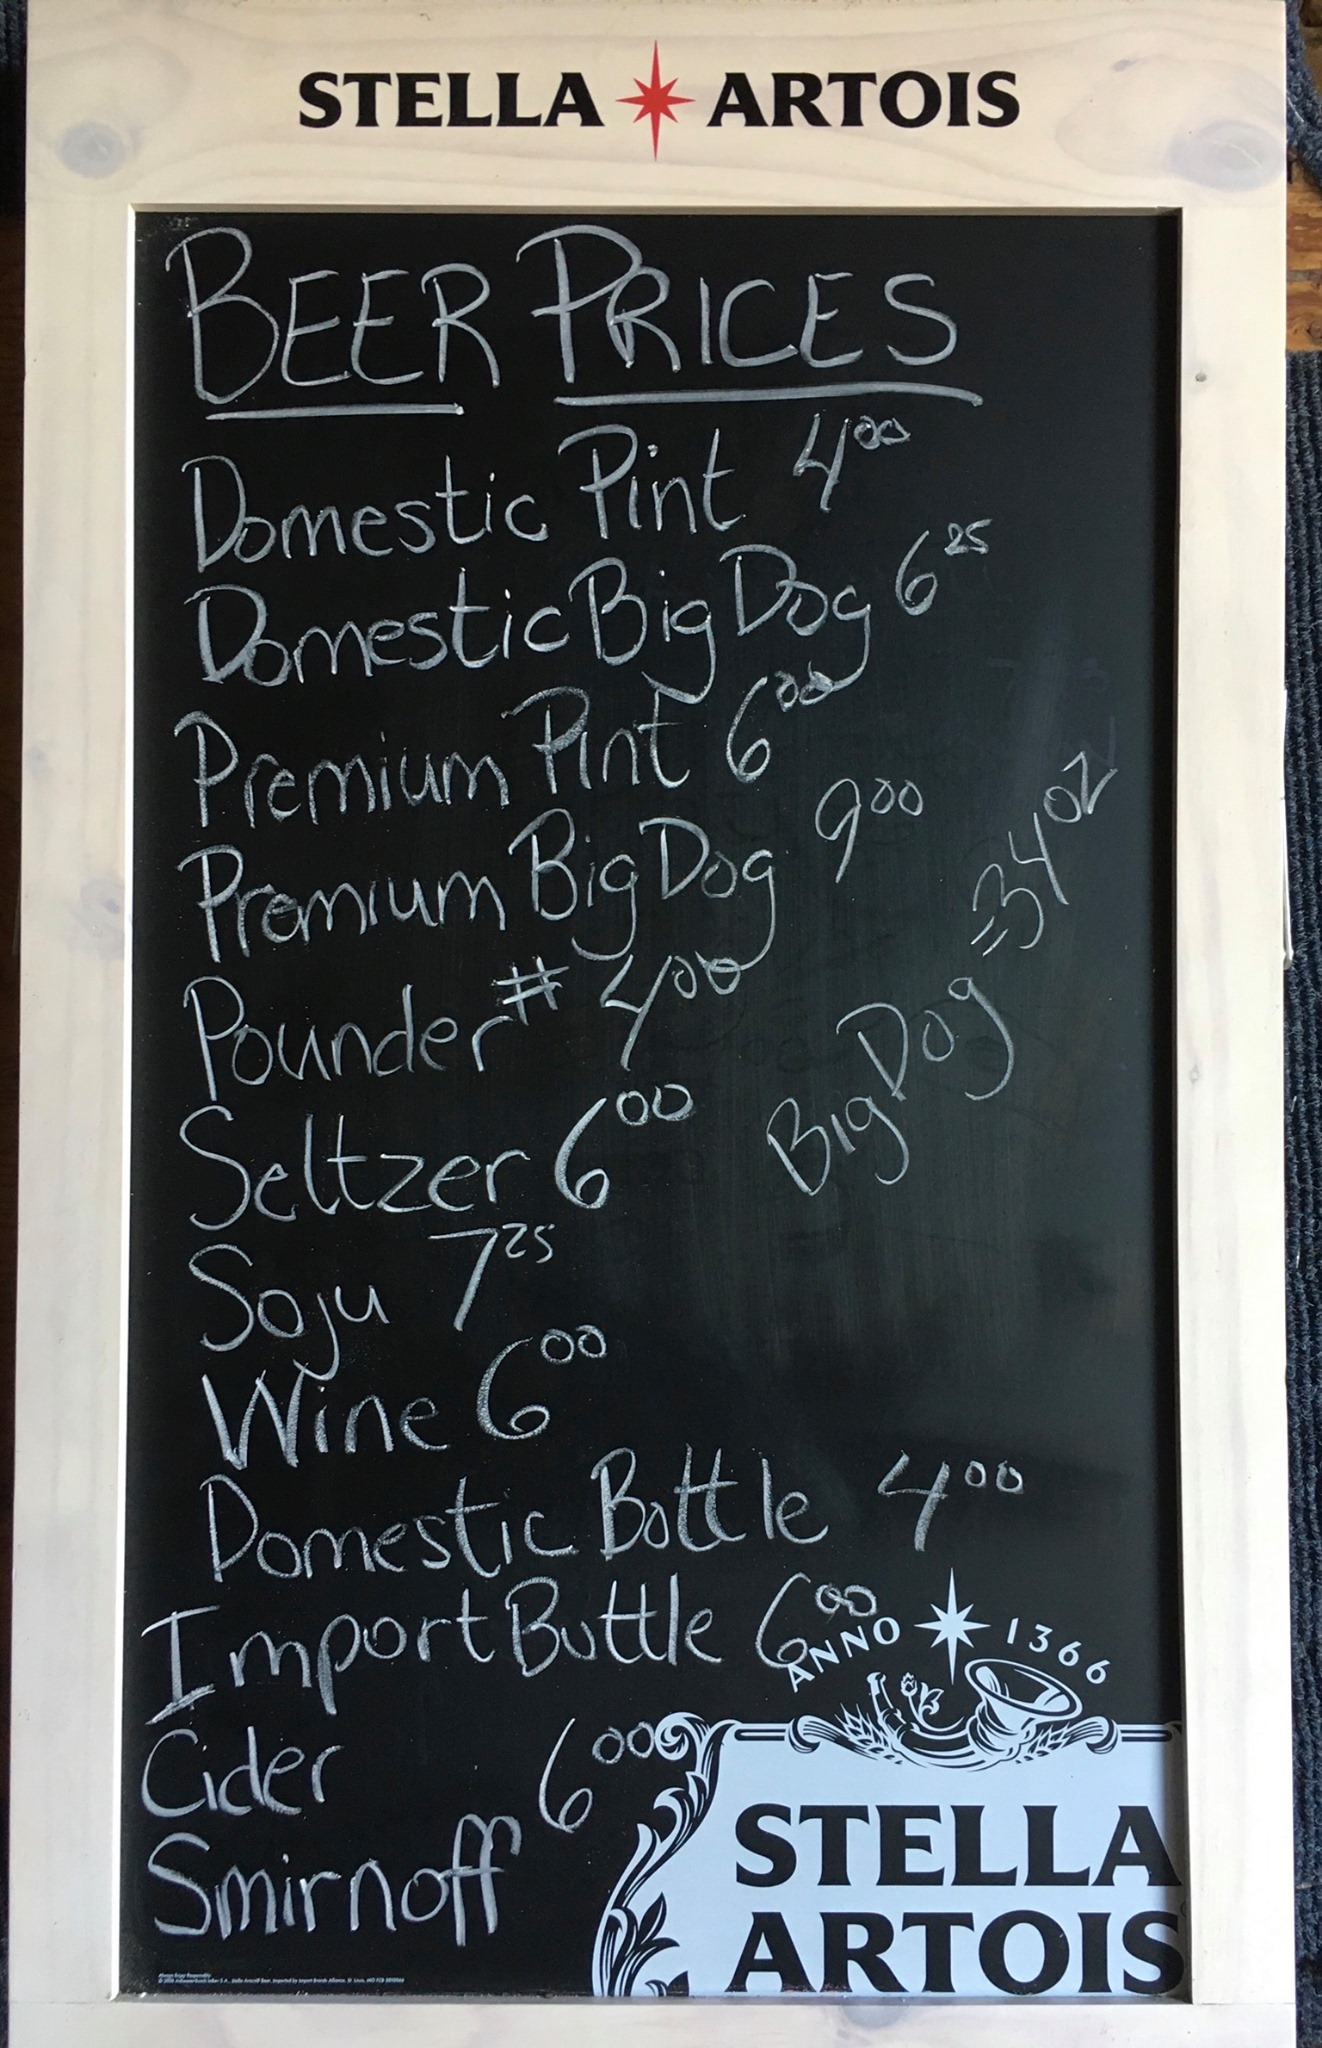 STELLA ARTOIS
BEER PRICES
Domestic Pint 4.00
Domestic Big Dog 6.25
Premium Pint 6.00
Premium Big Dog 9.00
Pounder # 4.00
Big Dog = 34 oz
Seltzer 6.00
Soju 7.25
Wine 6.00
Domestic Bottle 4.00
Import Bottle 6.00
Cider 6.00
Smirnoff
ANNO 1366
STELLA
ARTOIS
Always Enjoy Responsibly.